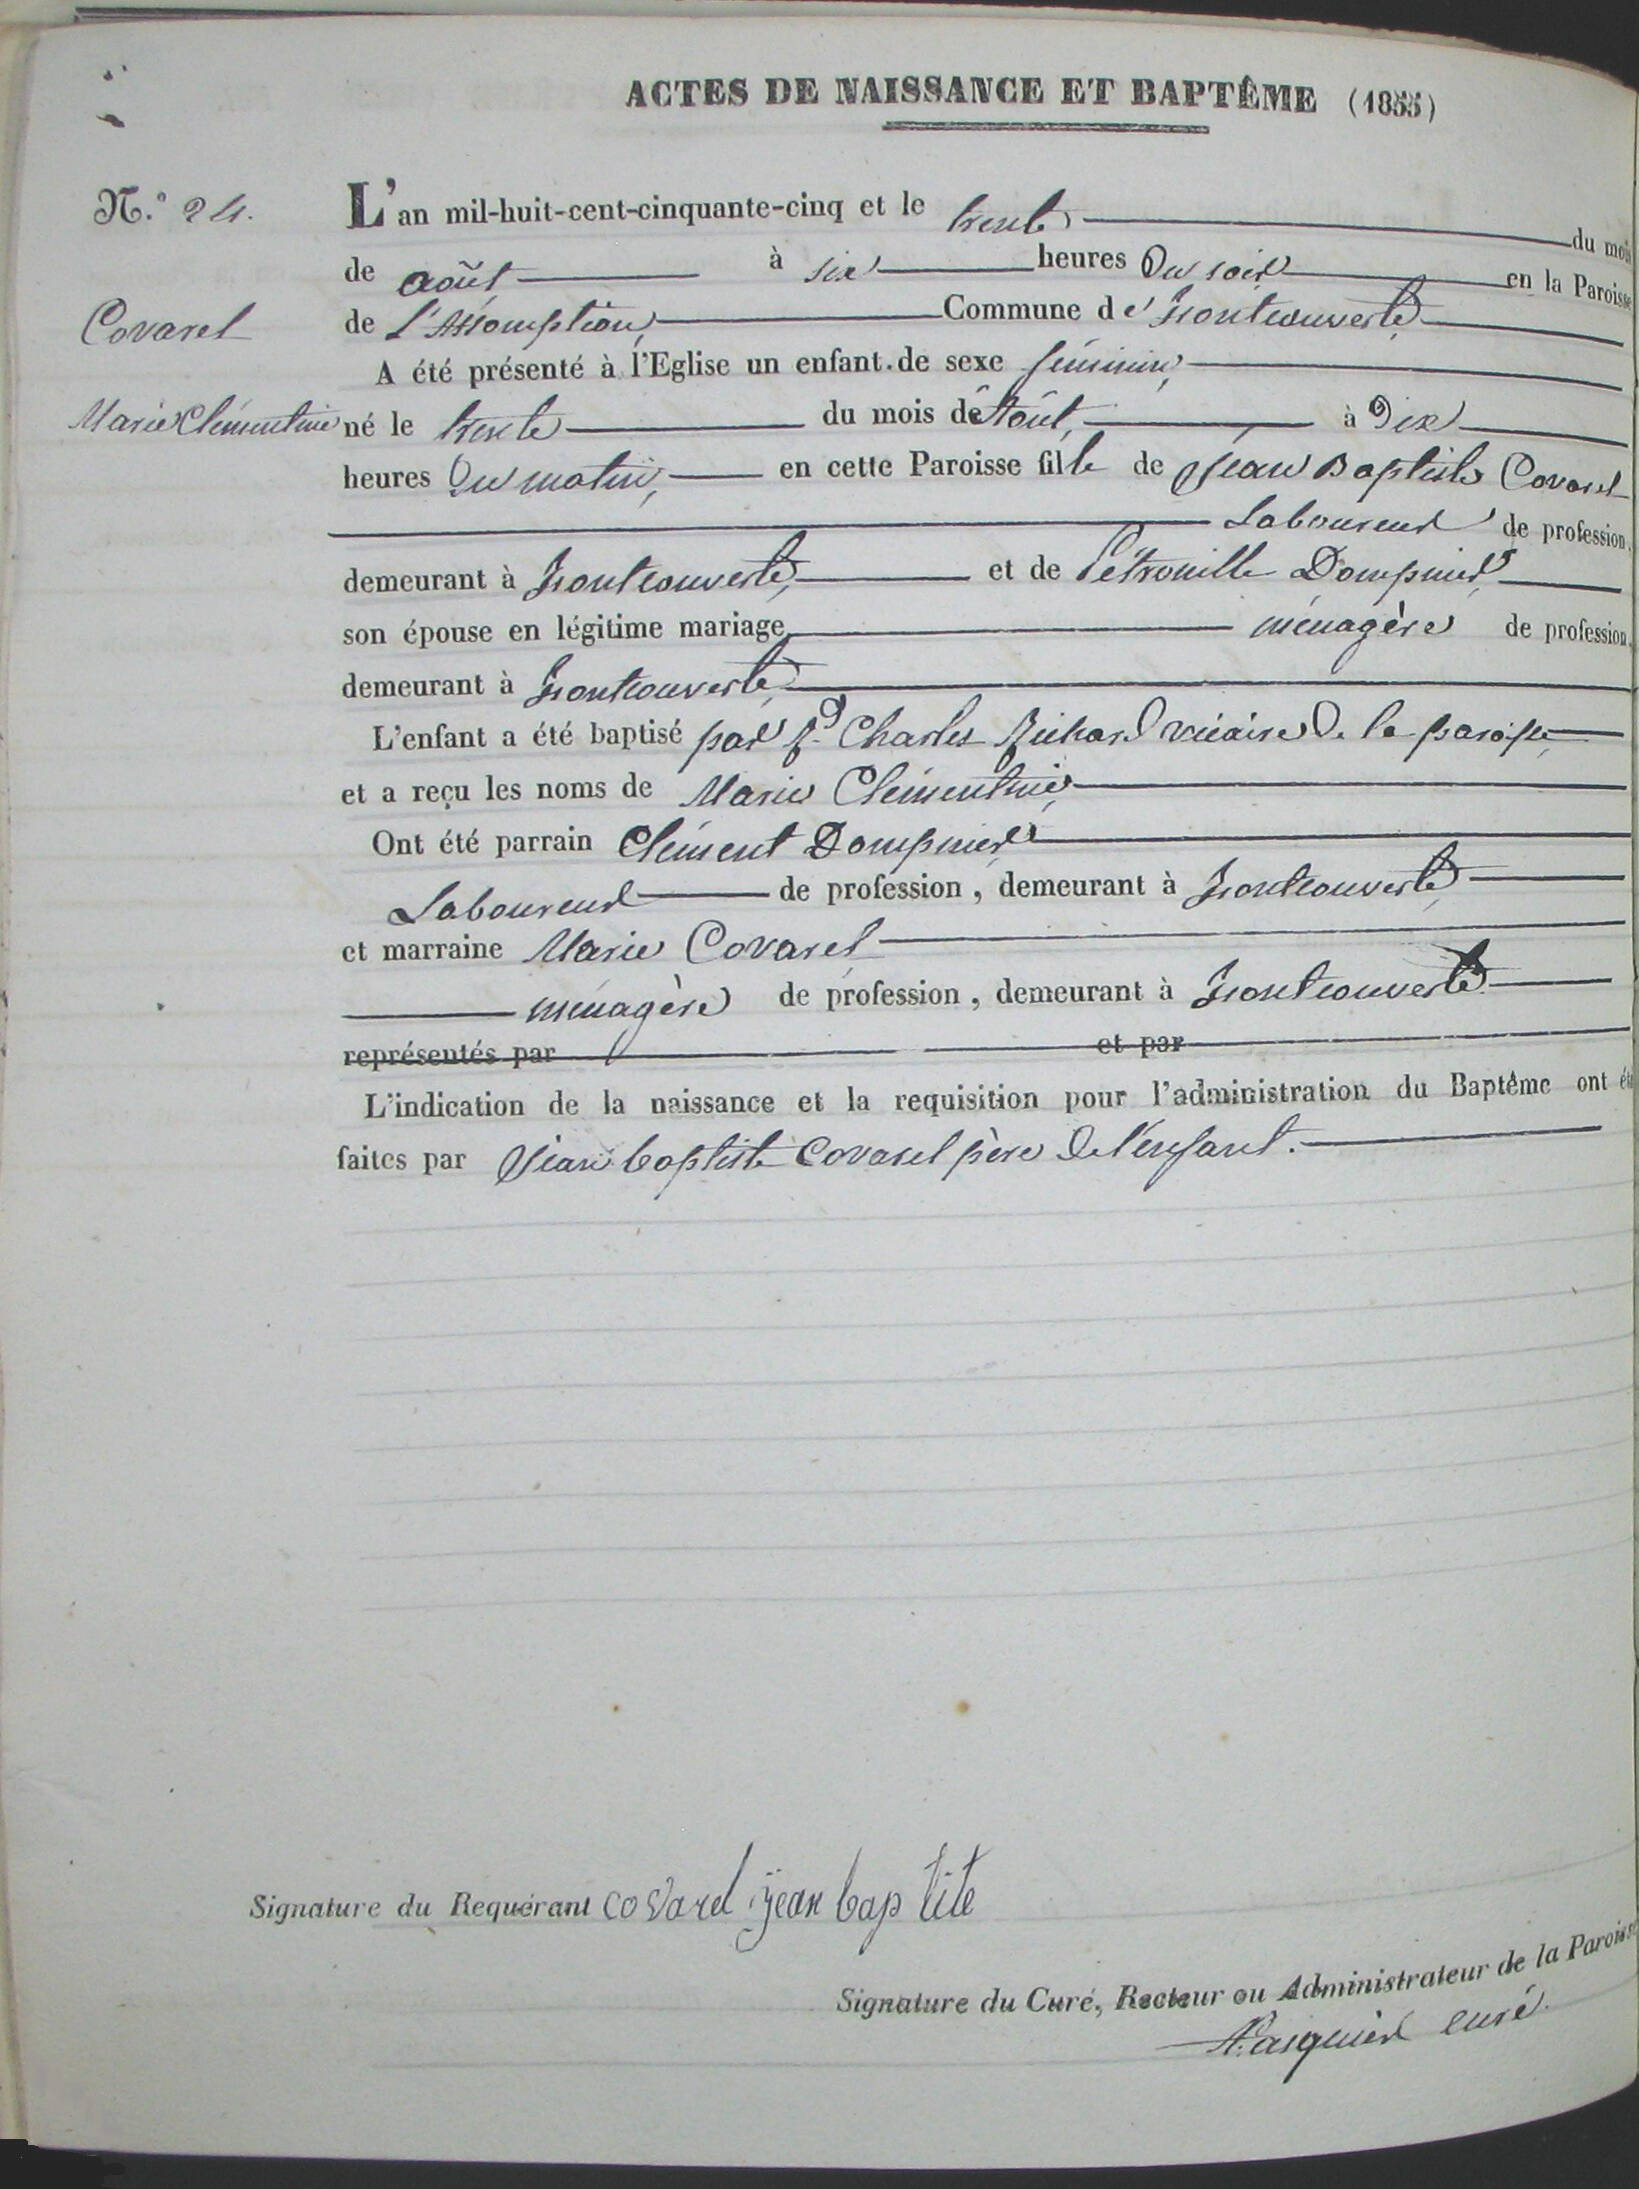 ACTES DE NAISSANCE ET BAPTÊME (1855)
N.° 24.
L'an mil-huit-cent-cinquante-cinq et le trente du mois
de Août à six heures Du soir en la Paroisse
Covarel
de L'Assomption, Commune de Montrouverte
A été présenté à l'Eglise un enfant de sexe féminin,
Marie Clémentine
né le trente du mois de Août, à Dix
heures Du matin, en cette Paroisse fille de Jean Baptiste Covarel
Laboureur de profession,
demeurant à Fontcouverte, et de Pétronille Dompnier,
son épouse en légitime mariage, ménagère de profession,
demeurant à Fontcouverte,
L'enfant a été baptisé par Rd Charles Richard vicaire De la paroisse,
et a reçu les noms de Marie Clémentine,
Ont été parrain Clément Dompnier,
Laboureur de profession, demeurant à Fontcouverte,
et marraine Marie Covarel
ménagère de profession, demeurant à Fontcouverte
représentés par et par
L'indication de la naissance et la requisition pour l'administration du Baptême ont été
faites par Jean baptiste Covarel père De l'enfant.
Signature du Requérant covarel jean baptite
Signature du Curé, Recteur ou Administrateur de la Paroisse
Pasquier curé.